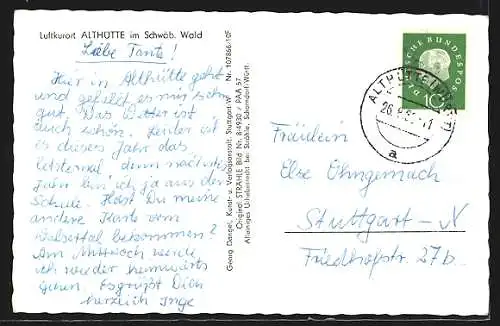 Luftkurort ALTHÜTTE im Schwäb. Wald
Liebe Tante!
Hier in Althütte geht
und gefällt es mir sehr
gut. Das Wetter ist
auch schön. Leider ist
es dieses Jahr das
letztemal, denn nächstes
Jahr bin ich ja aus der
Schule. Hast Du meine
andere Karte vom
bekommen?
Am Mittwoch werde
ich wieder heimwärts
gehen. Es grüßt Dich
herzlich Inge
Georg Dangel, Kunst- u. Verlagsanstalt, Stuttgart W Nr. 107866/10F
Original STRÄHLE Bild Nr. 8/4932 / PAA 57
Alleiniges Urheberrecht bei Strähle, Schorndorf-Württ.
DEUTSCHE BUNDESPOST
10
ALTHÜTTE
a
Fräulein
Else Ohngemach
Stuttgart - N
Friedhofstr. 27b.